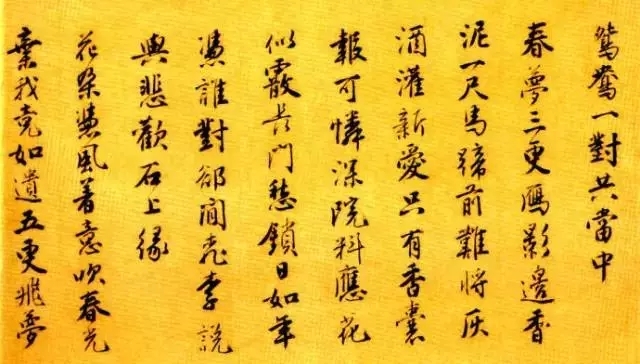 鴛鴦一對共當中
春夢三更鴈影邊香
泥一尺馬蹄前難將灰
酒灌新愛只有香囊
報可憐深院料應花
似霰長門愁鎖日如年
憑誰對卻閒桃李說
與悲歡石上緣
花朶慧風着意吹春光
棄我竟如遺五更飛夢